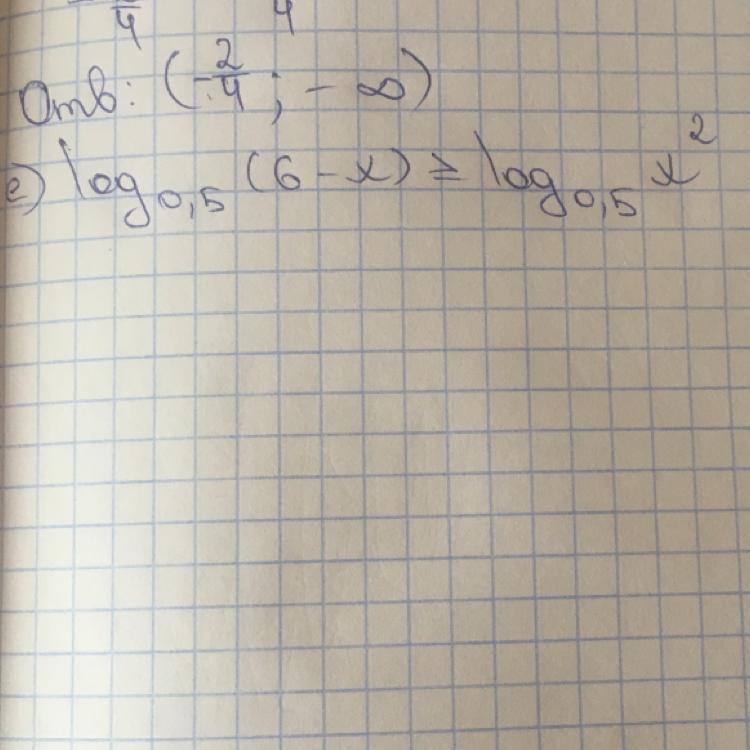 4 4
Отв: (-2/4; -∞)
е) log₀,₅ (6 - x) ≥ log₀,₅ x²